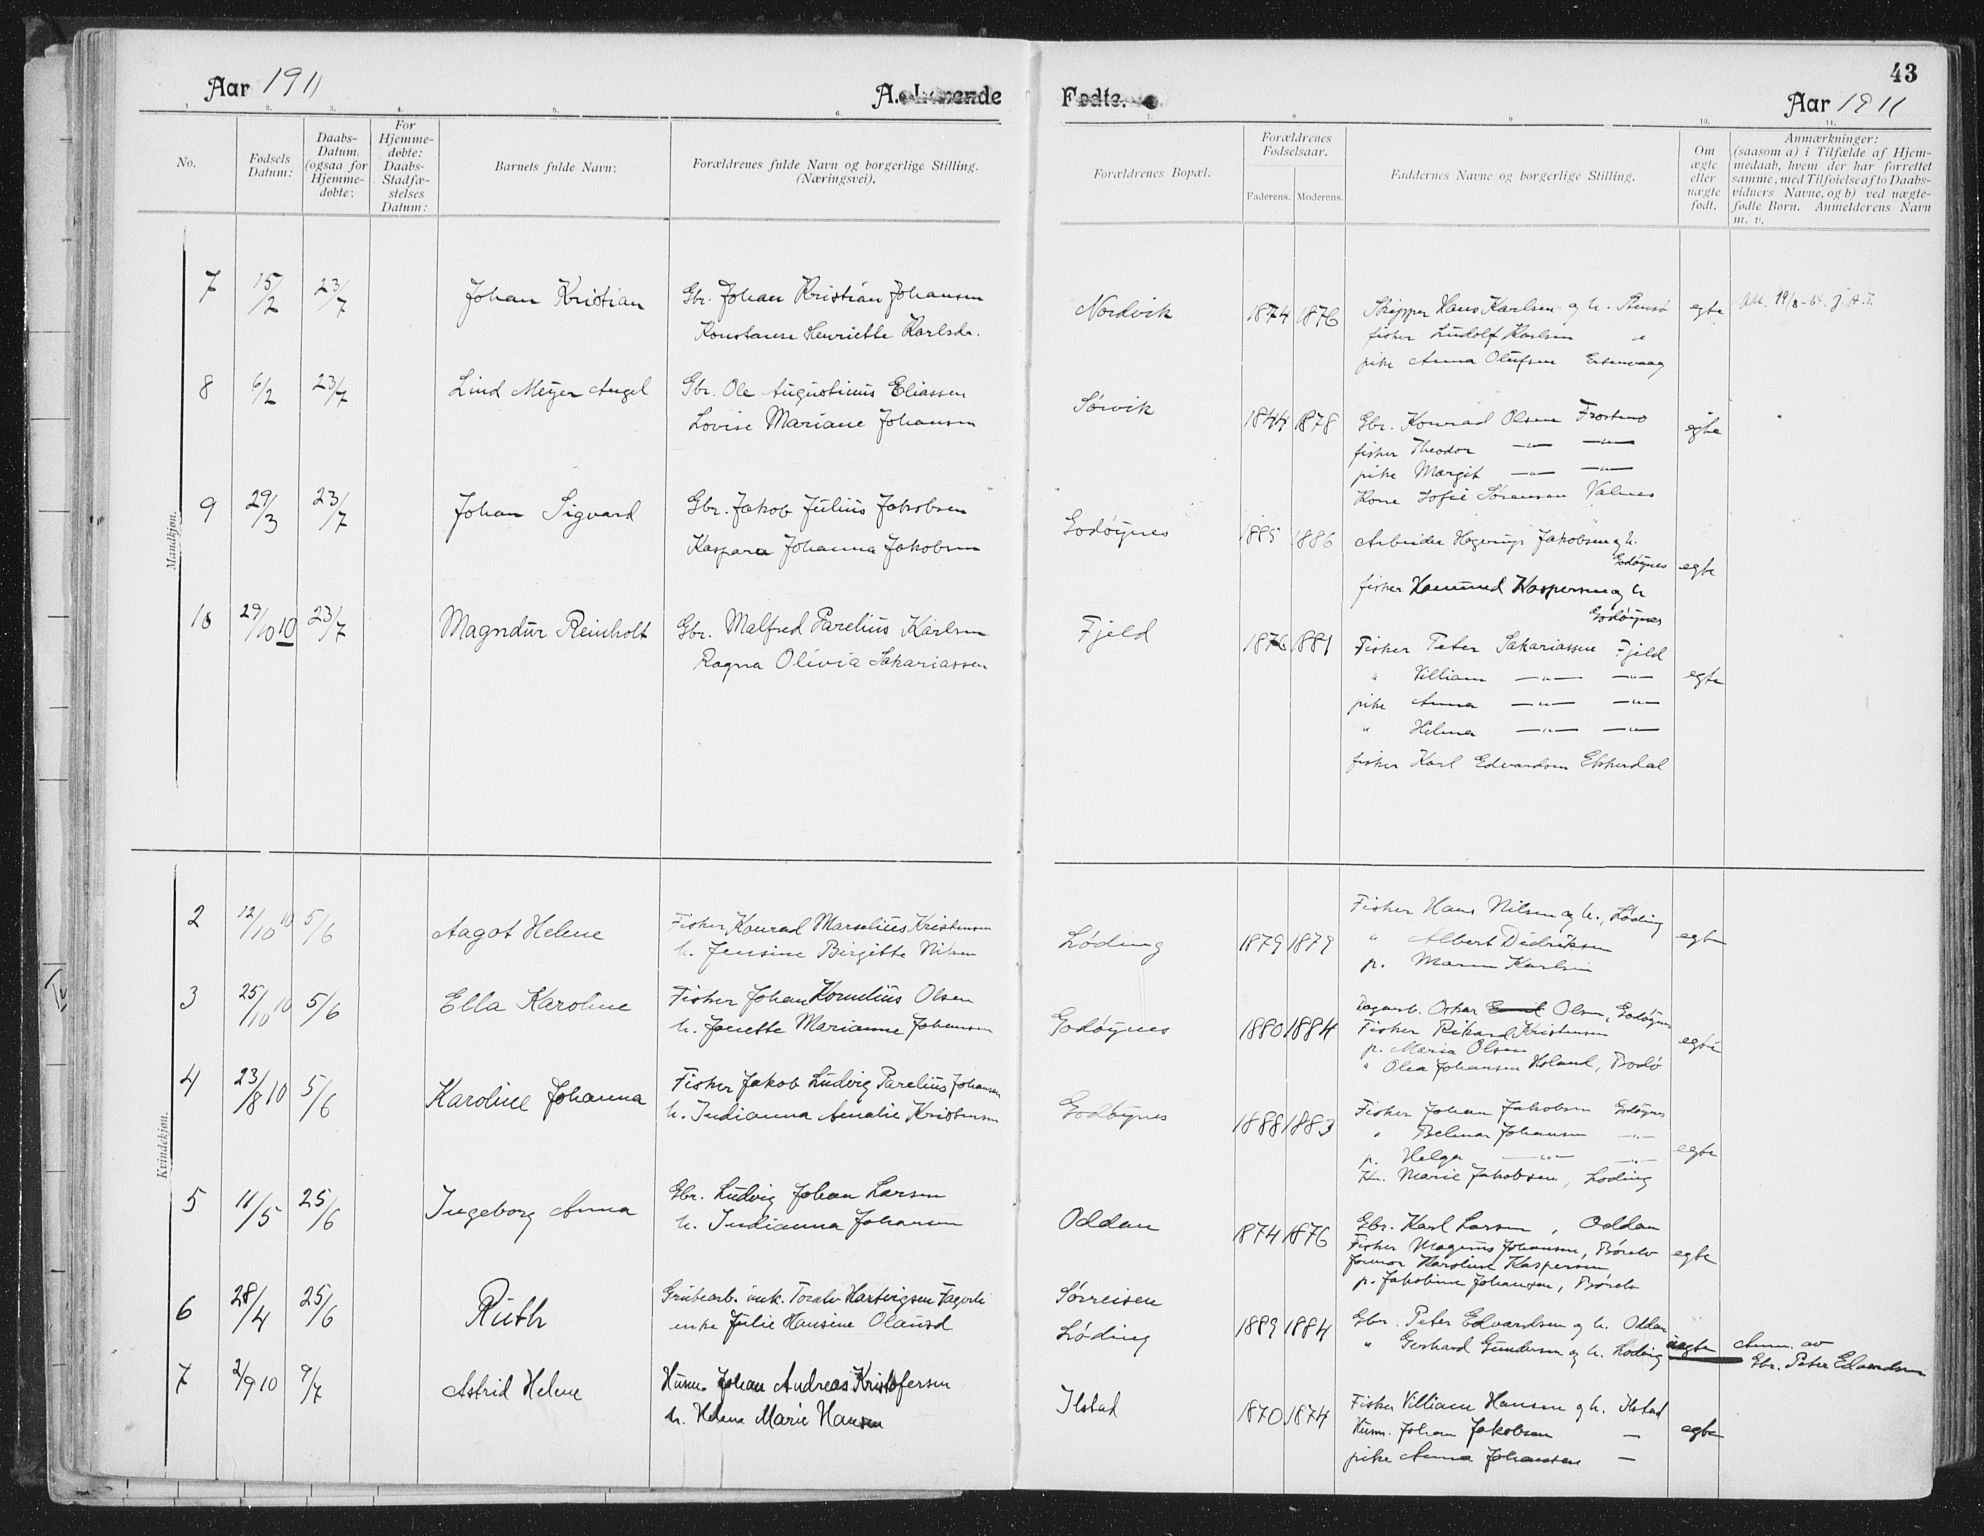 43
Aar 1911
A. Levende
Fødte.
Aar 1911
1. 2. 3. 4. 5. 6. 7. 8. 9. 10. 11.
No.
Fødsels Datum:
Daabs-Datum, (ogsaa for Hjemme-døbte:
For Hjemme-døbte: Daabs-Stadfæ-stelses Datum:
Barnets fulde Navn:
Forældrenes fulde Navn og borgerlige Stilling. (Næringsvei).
Forældrenes Bopæl.
Forældrenes Fødselsaar.
Faderens. Moderens.
Faddernes Navne og borgerlige Stilling.
Om ægte eller uægte født.
Anmærkninger:
(saasom a) i Tilfælde af Hjem-
medaab, hvem der har forrettet
samme, med Tilføielse af to Daabs-
vidners Navne, og b) ved uægte-
fødte Børn. Anmelderens Navn
m. v.
Mandkjøn.
7 15/2 23/7 Johan Kristian Gbr. Johan Kristian Johansen
Konstanse Henriette Karlsdr.
Nordvik 1874 1876 Skipper Hans Karlsen og h. Stensø egte
fisker Ludolf Karlsen "
pike Anna Olufsen
8 6/2 23/7 Lind Meyer Angel Gbr. Ole Augustinus Eliassen
Lovise Mariane Johansen
Sørvik 1844 1878 Gbr. Konrad Olsen Frostmo egte
fisker Theodor —"— —"—
pike Margit —"— —"—
Kone Sofie Sørensen Valnes
9 29/3 23/7 Johan Sigvard Gbr. Jakob Julius Jakobsen
Kaspara Johanna Jakobsen
Godøynes 1885 1886 Arbeider Hegerup Jakobsen og h.
Godøynes egte
fisker Hammud Kaspersen og h
Godøynes
10 29/10 10 23/7 Magndur Reinholt Gbr. Malfred Parelius Karlsen
Ragna Olivia Sakariassen
Fjeld 1876 1881 Fisker Peter Sakariassen Fjeld
" Villiam —"— —"— egte
pike Anna —"— —"—
" Hilma —"— —"—
fisker Karl Edvardsen Ekkerdal
Kvindekjøn.
2 12/10 10 5/6 Aagot Helene Fisker Konrad Marselius Kristensen
h. Jensine Birgitte Nilsen
Løding 1879 1879 Fisker Hans Nilsen og h., Løding egte
" Albert Didriksen
p. Maren Karlsen
3 25/10 10 5/6 Ella Karoline Fisker Johan Kornelius Olsen
h. Janette Marianne Johansen
Godøynes 1880 1884 Dagarb. Oskar Emil Olsen, Godøynes
Fisker Rikard Kristensen egte
p. Maria Olsen
" Olea Johansen Holand, Bodø
4 23/8 10 5/6 Karoline Johanna Fisker Jakob Ludvig Parelius Johansen
h. Indianna Amalie Kristensen
Godøynes 1888 1883 Fisker Johan Jakobsen Godøynes
" Belmar Johansen —"—
p. Helga —"— —"— egte
Kn. Marie Jakobsen, Løding
5 11/5 25/6 Ingeborg Anna Gbr. Ludvig Johan Larsen
h. Indianna Johansen
Oddan 1874 1876 Gbr. Karl Larsen, Oddan
Fisker Magnus Johansen, Børelv egte
Jormor Karoline Kaspersen
p. Jakobine Johansen, Børelv
6 28/4 25/6 Ruth Grubearb. unk. Toralv Hartvigsen Fagerli
enke Julie Hansine Olausd
Sørreisen
Løding 1889 1884 Gbr. Peter Edvardsen og h. Oddan
" Gerhard Gundersen og h. Løding uegte Anm. av
Gbr. Peter Edvardsen
7 2/9 10 9/7 Astrid Helene Husm. Johan Andreas Kristofersen
h. Helena Marie Hansen
Ilstad 1870 1874 Fisker Villiam Hansen og h. Ilstad
Husm. Johan Jakobsen — egte
pike Anna Johansen —